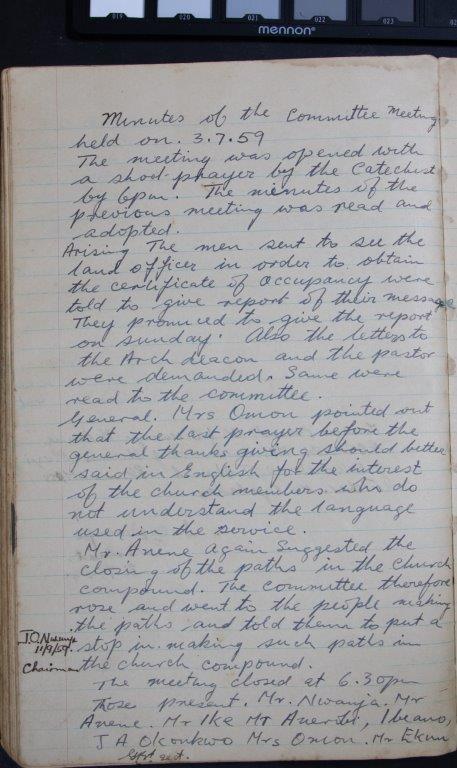 019 020 021 022 023
mennon®
Minutes of the Committee Meeting
held on. 3.7.59
The meeting was opened with
a short prayer by the Catechist
by 6pm. The minutes of the
previous meeting was read and
adopted.
Arising The men sent to see the
land officer in order to obtain
the certificate of occupancy were
told to give report of their message
They promised to give the report
on sunday. Also the letters to
the Arch deacon and the pastor
were demanded. Same were
read to the committee.
General. Mrs Omon pointed out
that the last prayer before the
general thanks giving should better
said in English for the interest
of the church members who do
not understand the language
used in the service.
Mr. Anene again Suggested the
closing of the paths in the church
compound. The committee therefore
rose and went to the people making
the paths and told them to put a
J.O. Nwanja
stop in making such paths in
11/9/59.
Chairman the church compound.
The meeting closed at 6.30pm
Those present. Mr. Nwanja. Mr
Anene. Mr Ike Mr
J A Okonkwo Mrs Omon. Mr Ekun